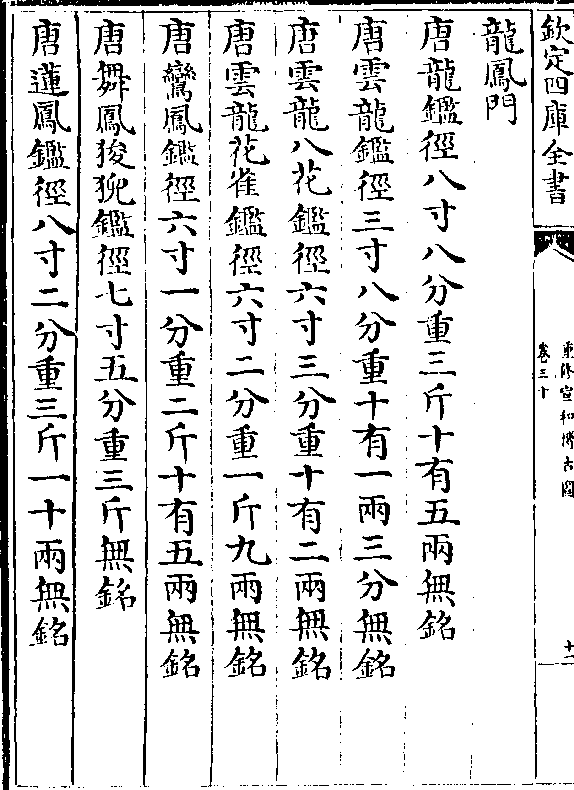 欽定四庫全書
重修宣和博古圖
卷三十
十二
龍鳳門
唐龍鑑徑八寸八分重三斤十有五兩無銘
唐雲龍鑑徑三寸八分重十有一兩三分無銘
唐雲龍八花鑑徑六寸三分重十有二兩無銘
唐雲龍花雀鑑徑六寸二分重一斤九兩無銘
唐鸞鳳鑑徑六寸一分重二斤十有五兩無銘
唐舞鳳狻猊鑑徑七寸五分重三斤無銘
唐蓮鳳鑑徑八寸二分重三斤一十兩無銘